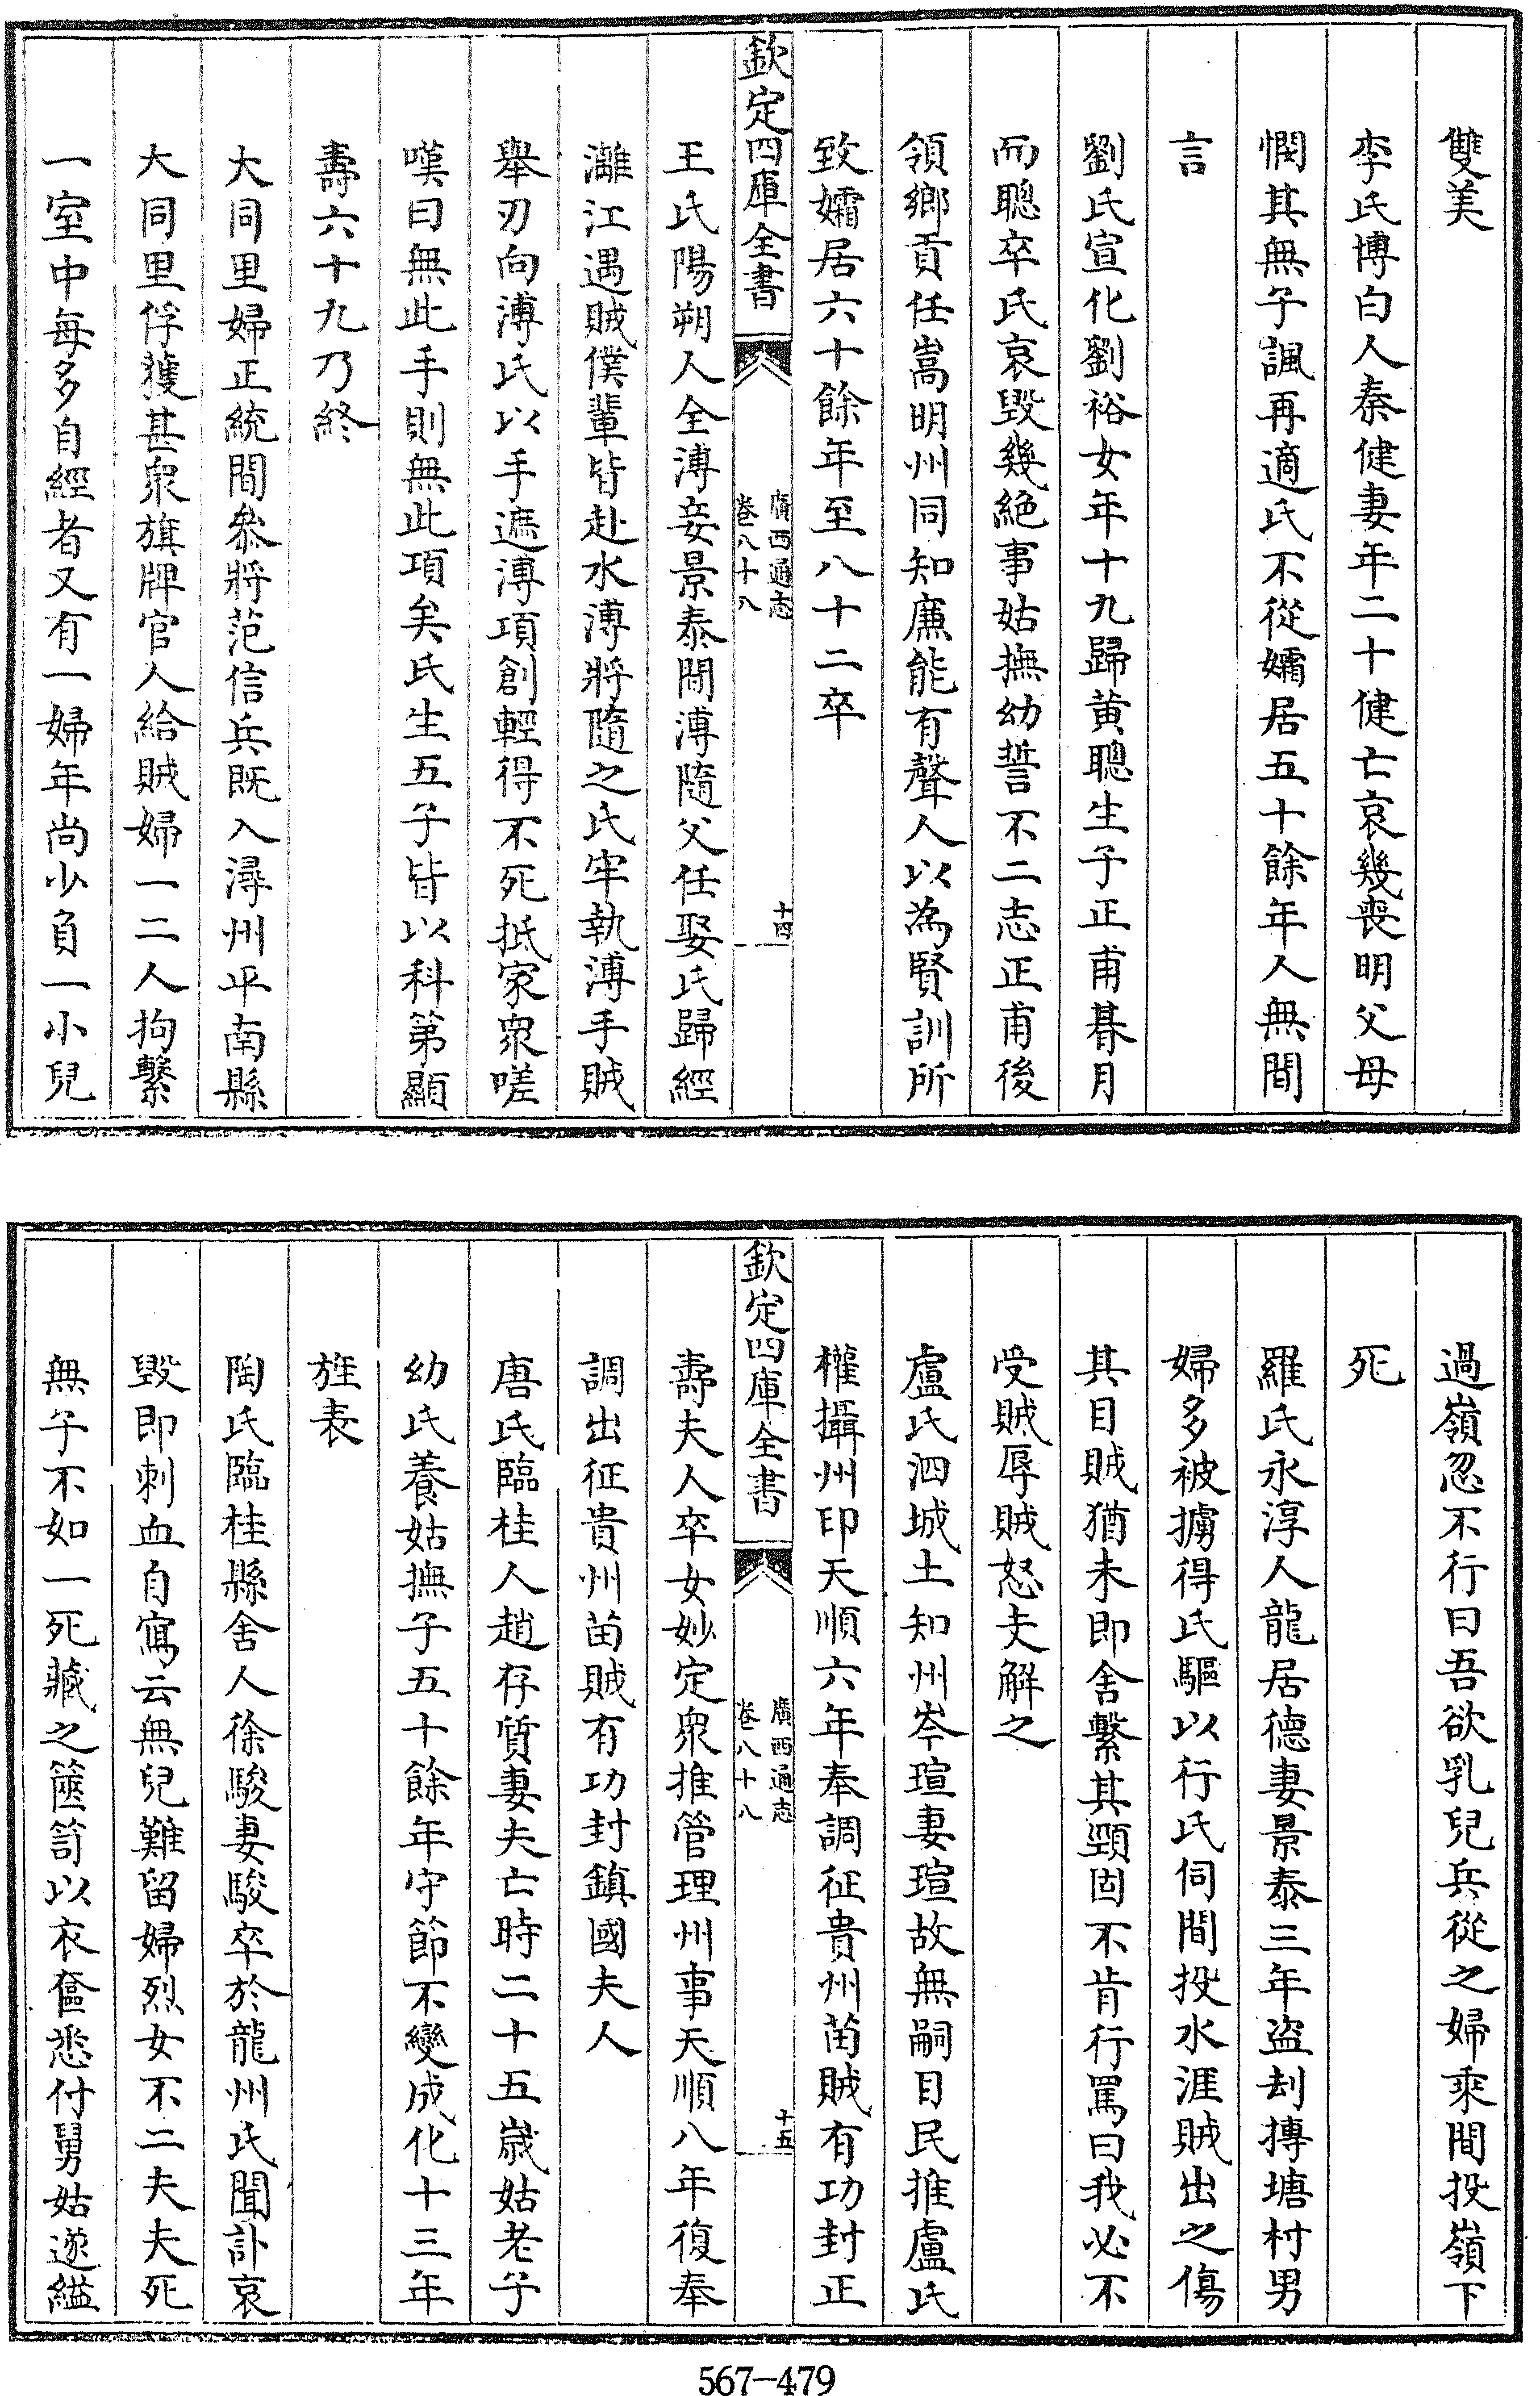 雙美
李氏博白人秦健妻年二十健亡哀幾喪明父母
憫其無子諷再適氏不從孀居五十餘年人無間
言
劉氏宣化劉裕女年十九歸黄聰生子正甫朞月
而聰卒氏哀毀幾絕事姑撫幼誓不二志正甫後
領鄉貢任嵩明州同知廉能有聲人以為賢訓所
致孀居六十餘年至八十二卒
欽定四庫全書
廣西通志
卷八十八
十四
王氏陽朔人全溥妾景泰間溥隨父任娶氏歸經
灕江遇賊僕輩皆赴水溥將隨之氏牢執溥手賊
舉刃向溥氏以手遮溥項創輕得不死抵家衆嗟
嘆曰無此手則無此項矣氏生五子皆以科第顯
壽六十九乃終
大同里婦正統間叅將范信兵既入潯州平南縣
大同里俘獲甚衆旗牌官人給賊婦一二人拘繫
一室中每多自經者又有一婦年尚少負一小兒
過嶺忽不行曰吾欲乳兒兵從之婦乘間投嶺下
死
羅氏永淳人龍居德妻景泰三年盜刦摶塘村男
婦多被擄得氏驅以行氏伺間投水涯賊出之傷
其目賊猶未即舍繫其頸固不肯行罵曰我必不
受賊辱賊怒支解之
盧氏泗城土知州岑瑄妻瑄故無嗣目民推盧氏
權攝州印天順六年奉調征貴州苗賊有功封正
欽定四庫全書
廣西通志
卷八十八
十五
壽夫人卒女妙定衆推管理州事天順八年復奉
調出征貴州苗賊有功封鎮國夫人
唐氏臨桂人趙存質妻夫亡時二十五歲姑老子
幼氏養姑撫子五十餘年守節不變成化十三年
旌表
陶氏臨桂縣舍人徐駿妻駿卒於龍州氏聞訃哀
毀即刺血自寫云無兒難留婦烈女不二夫夫死
無子不如一死藏之篋笥以衣奩悉付舅姑遂縊
567-479